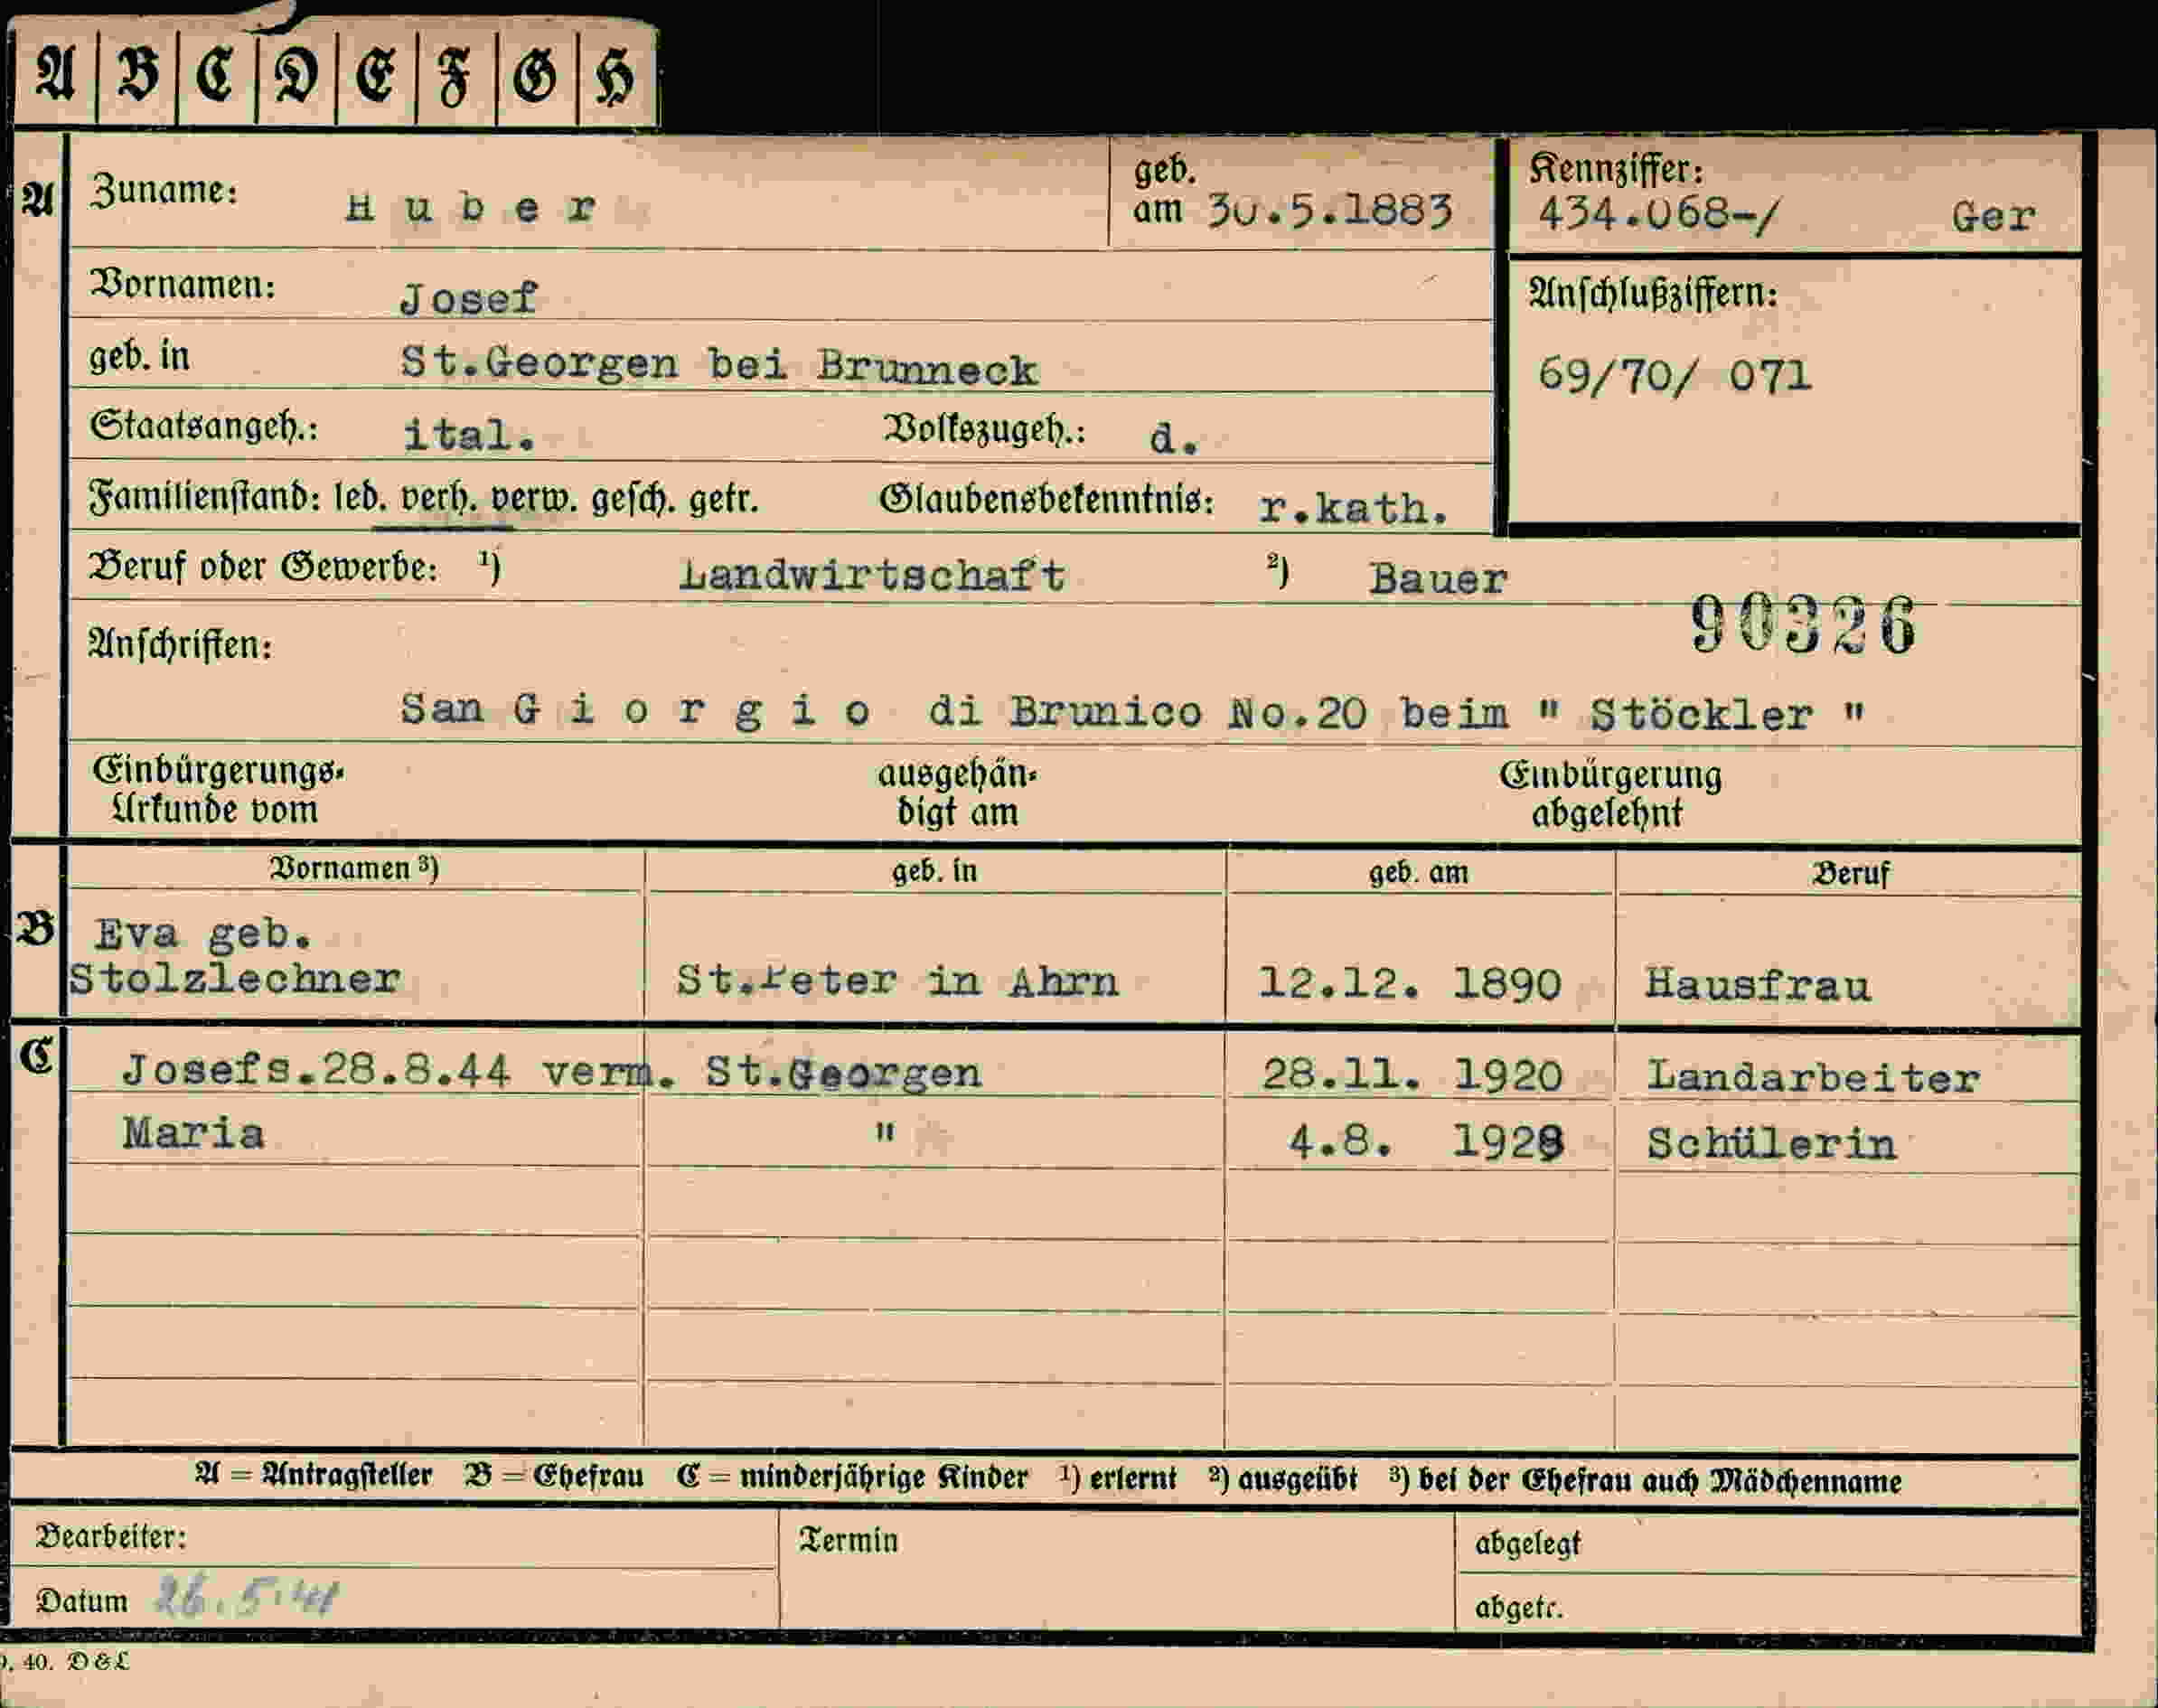 A B C D E F G H
A Zuname: H u b e r geb. am 30.5.1883 Kennziffer: 434.068-/ Ger
Vornamen: Josef Anschlußziffern:
geb. in St.Georgen bei Brunneck 69/70/ 071
Staatsangeh.: ital. Volkszugeh.: d.
Familienstand: led. verh. verw. gesch. getr. Glaubensbekenntnis: r.kath.
Beruf oder Gewerbe: ¹) Landwirtschaft ²) Bauer
90326
Anschriften:
San G i o r g i o di Brunico No.20 beim " Stöckler "
Einbürgerungs- ausgehän- Einbürgerung
Urkunde vom digt am abgelehnt
Vornamen ³) geb. in geb. am Beruf
B Eva geb.
Stolzlechner St.Peter in Ahrn 12.12. 1890 Hausfrau
C Josefs.28.8.44 verm. St.Georgen 28.11. 1920 Landarbeiter
Maria " 4.8. 1928 Schülerin
A = Antragsteller B = Ehefrau C = minderjährige Kinder ¹) erlernt ²) ausgeübt ³) bei der Ehefrau auch Mädchenname
Bearbeiter: Termin abgelegt
Datum 26.5.41 abgetr.
40. D & L